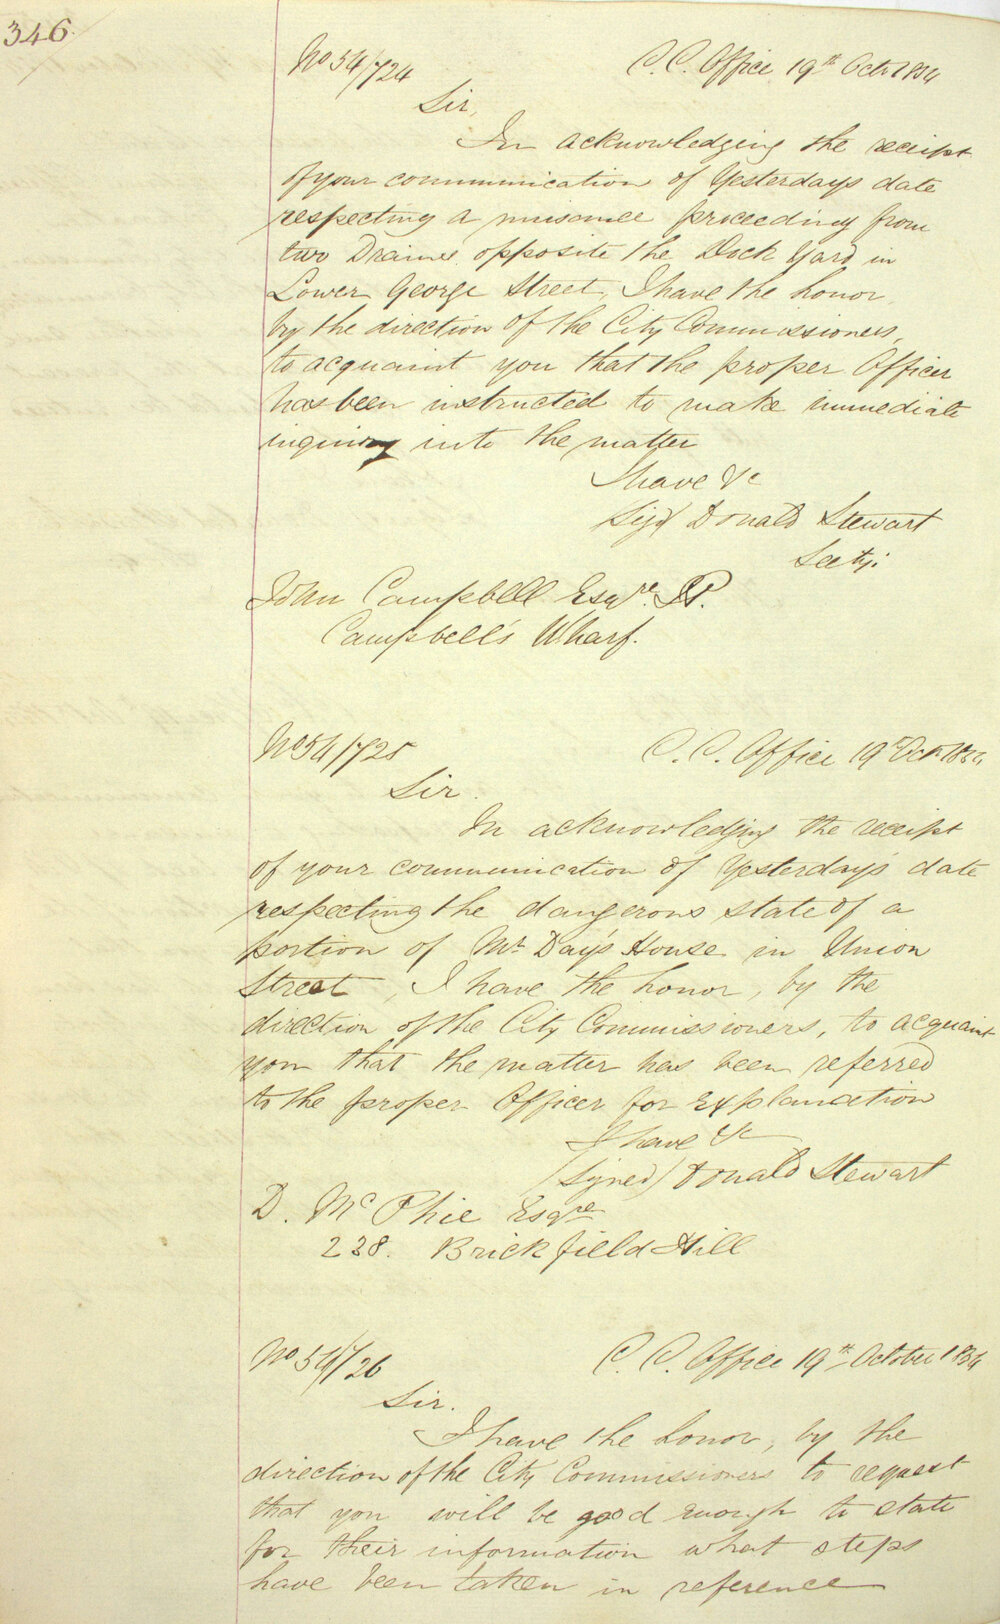 346.
No 54/724 C. C. Office 19th Octr 1854
Sir,
In acknowledging the receipt
of your communication of Yesterdays date
respecting a nuisance proceeding from
two Drains opposite the Dock Yard in
Lower George Street, I have the honor
by the direction of the City Commissioners,
to acquaint you that the proper Officer
has been instructed to make immediate
inquiry into the matter
I have &c
Sigd Donald Stewart
Secty.
John Campbell Esqre. JP.
Campbell's Wharf.
No 54/725 C. C. Office 19th Octr 1854
Sir.
In acknowledging the receipt
of your communication of Yesterday's date
respecting the dangerous state of a
portion of Mr Day's House in Union
Street, I have the honor, by the
direction of the City Commissioners, to acquaint
you that the matter has been referred
to the proper Officer for Explanation
I have &c
(Signed) Donald Stewart
D. McPhie Esqre
238. Brickfield Hill
No 54/726 C. C. Office 19th October 1854
Sir.
I have the honor, by the
direction of the City Commissioners to request
that you will be good enough to state
for their information what steps
have been taken in reference